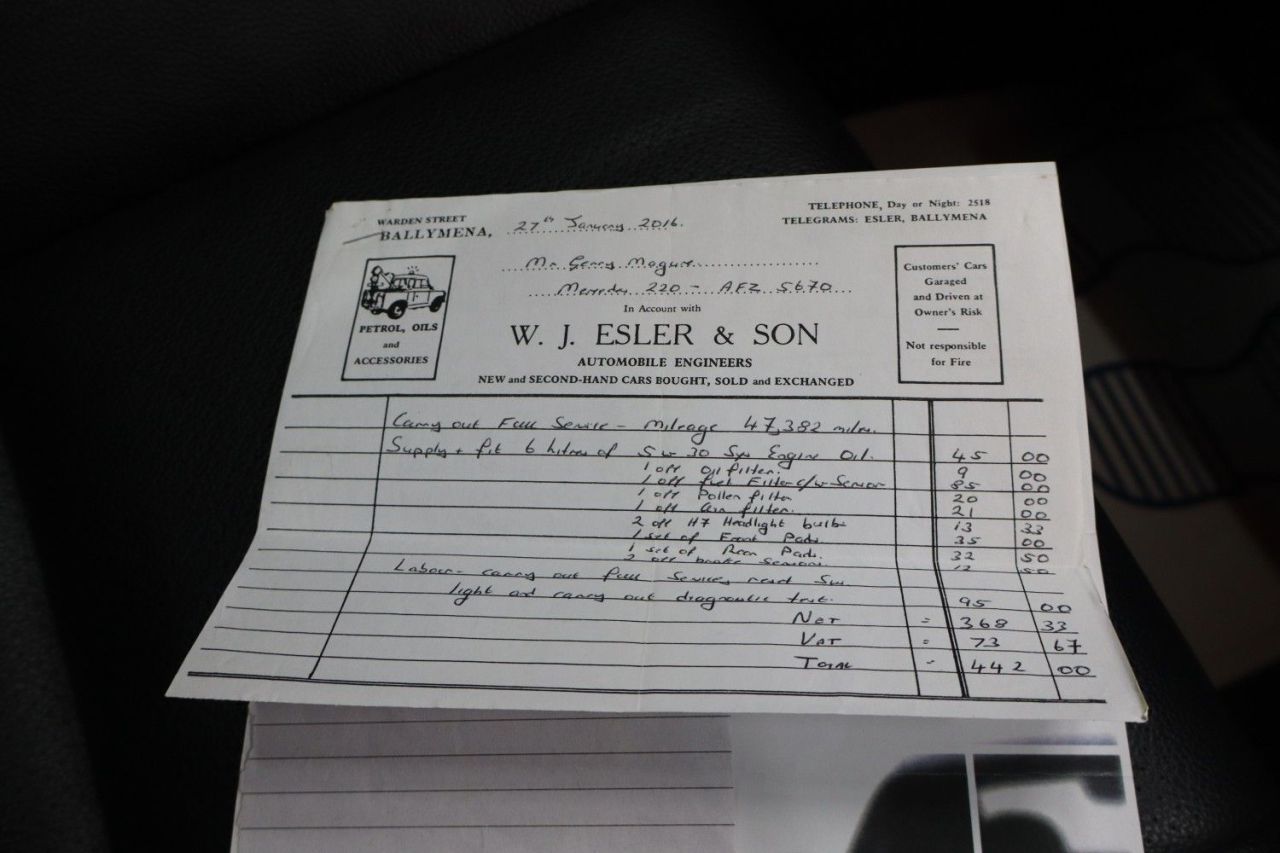 WARDEN STREET
BALLYMENA, 27th January 2016.
TELEPHONE, Day or Night: 2518
TELEGRAMS: ESLER, BALLYMENA
Mr Gerry Maguire
Mercedes 220 - AFZ 5670
In Account with
W. J. ESLER & SON
AUTOMOBILE ENGINEERS
NEW and SECOND-HAND CARS BOUGHT, SOLD and EXCHANGED
PETROL, OILS
and
ACCESSORIES
Customers' Cars
Garaged
and Driven at
Owner's Risk
Not responsible
for Fire
Carry out Full Service - Mileage 47,382 miles.
Supply + fit 6 litres of 5w 30 Syn Engine Oil. 45 00
1 off Oil filter. 9 00
1 off fuel Filter c/w Sensor 85 00
1 off Pollen filter 20 00
1 off Air filter. 21 00
2 off H7 Headlight bulbs 13 33
1 set of Front Pads. 35 00
1 set of Rear Pads. 32 50
2 off brake sensors. 12 50
Labour - carry out full Service, reset
light and carry out diagnostic test. 95 00
Net = 368 33
VAT = 73 67
Total = 442 00